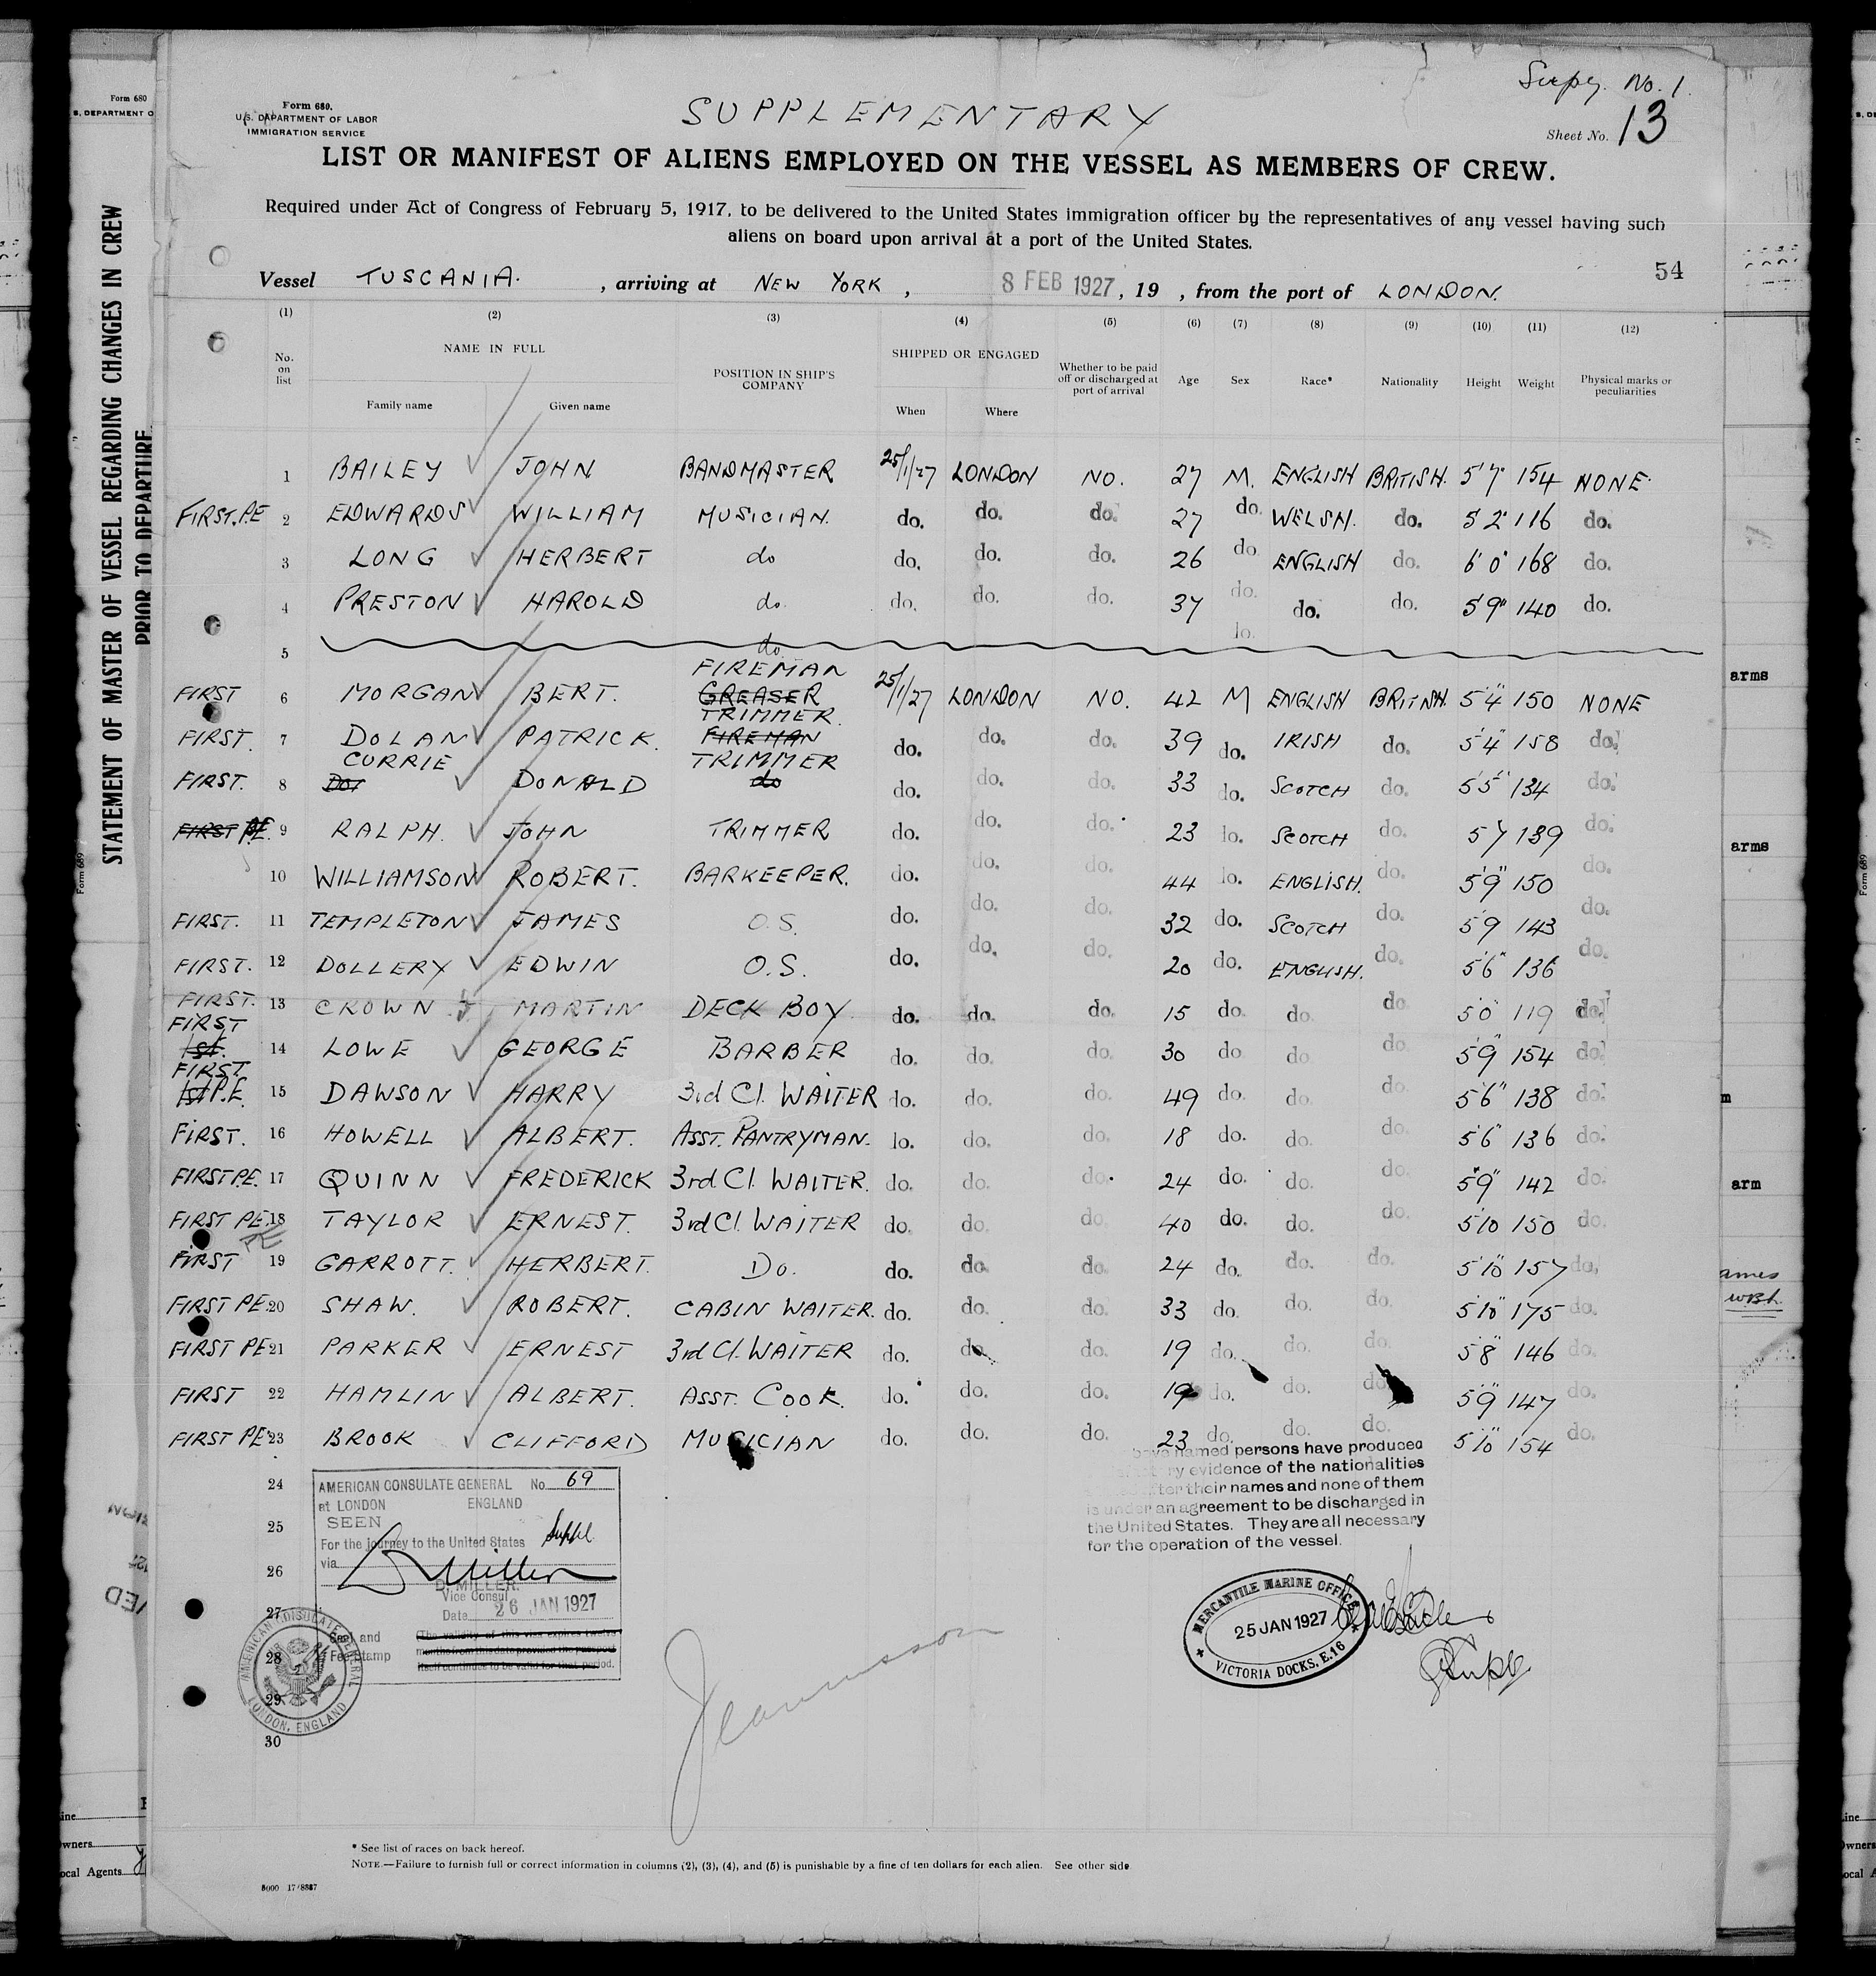 Supy. No. 1.
Form 680.
U.S. DEPARTMENT OF LABOR
IMMIGRATION SERVICE
SUPPLEMENTARY
Sheet No. 13
LIST OR MANIFEST OF ALIENS EMPLOYED ON THE VESSEL AS MEMBERS OF CREW.
Required under Act of Congress of February 5, 1917, to be delivered to the United States immigration officer by the representatives of any vessel having such
aliens on board upon arrival at a port of the United States.
54
Vessel TUSCANIA. , arriving at NEW YORK , 8 FEB 1927 , 19 , from the port of LONDON.
(1) (2) (3) (4) (5) (6) (7) (8) (9) (10) (11) (12)
No. on list NAME IN FULL Family name Given name POSITION IN SHIP'S COMPANY SHIPPED OR ENGAGED When Where Whether to be paid off or discharged at port of arrival Age Sex Race* Nationality Height Weight Physical marks or peculiarities
1 BAILEY JOHN BANDMASTER 25/1/27 LONDON NO. 27 M. ENGLISH BRITISH. 5'7" 154 NONE.
FIRST.P.E 2 EDWARDS WILLIAM MUSICIAN. do. do. do. 27 do. WELSH. do. 5'2" 116 do.
3 LONG HERBERT do do. do. do. 26 do. ENGLISH do. 6'0" 168 do.
4 PRESTON HAROLD do. do. do. do. 37 do. do. do. 5'9" 140 do.
5 do. lo.
FIREMAN
FIRST 6 MORGAN BERT. GREASER 25/1/27 LONDON NO. 42 M ENGLISH BRITISH. 5'4" 150 NONE
TRIMMER.
FIRST. 7 DOLAN PATRICK. FIREMAN do. do. do. 39 do. IRISH do. 5'4" 158 do.
CURRIE TRIMMER
FIRST. 8 Do. DONALD do do. do. do. 33 do. SCOTCH do. 5'5" 134 do.
FIRST P.E. 9 RALPH. JOHN TRIMMER do. do. do. 23 lo. SCOTCH do. 5 7 139 do.
10 WILLIAMSON ROBERT. BARKEEPER. do. do. do. 44 lo. ENGLISH. do. 5'9" 150 do.
FIRST. 11 TEMPLETON JAMES O.S. do. do. do. 32 do. SCOTCH do. 5'9 143 do.
FIRST. 12 DOLLERY EDWIN O.S. do. do. do. 20 do. ENGLISH. do. 5'6" 136 do.
FIRST. 13 CROWN MARTIN DECK BOY. do. do. do. 15 do. do. do 5'0" 119 do.
FIRST
1st. 14 LOWE GEORGE BARBER do. do. do. 30 do do do 5'9" 154 do.
FIRST
1st P.E. 15 DAWSON HARRY 3rd Cl. WAITER lo. do. do. 49 do. do. do. 5'6" 138 do.
FIRST. 16 HOWELL ALBERT. ASST. PANTRYMAN. lo. do. do. 18 do. do. do. 5'6" 136 do.
FIRST PE. 17 QUINN FREDERICK 3rd Cl. WAITER. do. do. do. 24 do. do. do. 5'9" 142 do.
FIRST PE. 18 TAYLOR ERNEST. 3rd Cl. WAITER do. do. do. 40 do. do. do. 5'10 150 do.
PE
FIRST 19 GARROTT. HERBERT. Do. do. do. do. 24 do. do. do. 5'10" 157 do.
FIRST PE. 20 SHAW. ROBERT. CABIN WAITER. do. do. do. 33 do. do. do. 5'10" 175 do.
FIRST PE 21 PARKER ERNEST 3rd Cl. WAITER do. do. do. 19 do. do. do. 5'8" 146 do.
FIRST 22 HAMLIN ALBERT. ASST. COOK. do. do. do. 19 do. do. do 5'9" 147 do.
FIRST PE 23 BROOK CLIFFORD MUSICIAN do. do. do. 23 do. do. do. 5'10" 154 do.
24
25
26
27
28
29
30
AMERICAN CONSULATE GENERAL No. 69
at LONDON ENGLAND
SEEN
For the journey to the United States Suppl
via
D Miller
D. MILLER.
Vice Consul
Date 26 JAN 1927
Seal and
Fee Stamp
(The validity of this visa expires twelve
months from this date provided the passport
itself continues to be valid for that period.
AMERICAN CONSULATE GENERAL
LONDON, ENGLAND
named persons have produced
evidence of the nationalities
after their names and none of them
is under an agreement to be discharged in
the United States. They are all necessary
for the operation of the vessel.
MERCANTILE MARINE OFFICE
25 JAN 1927
VICTORIA DOCKS, E.16
* See list of races on back hereof.
NOTE.—Failure to furnish full or correct information in columns (2), (3), (4), and (5) is punishable by a fine of ten dollars for each alien. See other side.
STATEMENT OF MASTER OF VESSEL REGARDING CHANGES IN CREW
PRIOR TO DEPARTURE
Form 680
S. DEPARTMENT O
Form 689
wners
ocal Agents
arms
arms
arm
ames
W.B.h.
Form 689